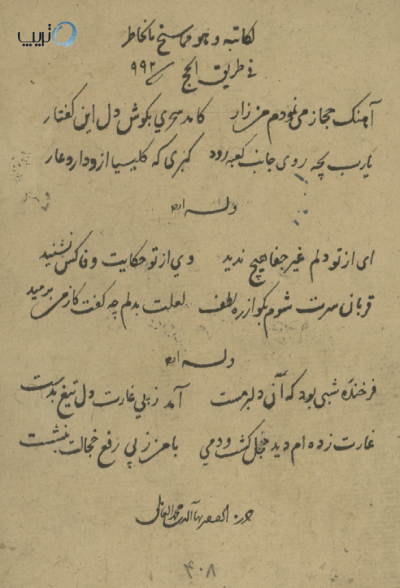 تریپ
لکاتبه و هو مما سنح بالخاطر
فی طریق الحج سنه ۹۹۲
آهنک حجاز می نمودم من زار کامد سحری بکوش دل این کفتار
یارب بچه روی جانب کعبه رود کبری که کلیسیا ازو دارد عار
وله ایضا
ای از تو دلم غیر جفا هیچ ندید وی از تو حکایت وفا کس نشنید
قربان سرت شوم بکو از ره لطف لعلت بدلم چه کفت کز من برمید
وله ایضا
فرخنده شبی بود که آن دلبر مست آمد ز پی غارت دل تیغ بدست
غارت زده ام دید خجل کشت و دمی با من ز پی رفع خجالت بنشست
حرره بهاء الدین محمد العاملی
۴۰۸